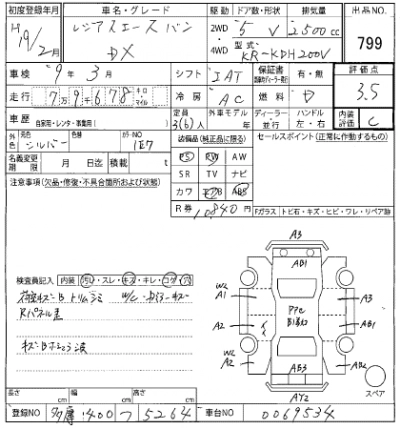 初度登録年月 車名・グレード 駆動 ドア数・形状 排気量 出品NO.
H19/2月 レジアスエース バン DX 2WD・4WD 5 V 2500cc 799
型式 KR-KDH200V
車検 9年3月 シフト IAT 保証書 有・無 評価点 3.5
走行 7万9千678 キロ マイル 冷房 AC 燃料 D
車歴 自家用・レンタ・事業用( ) 定員 3(6)人 外車モデル 年 ディーラー・並行 ハンドル 左・右 内装評価 C
外色 元色 シルバー 色替 カラーNO 1E7 装備品(純正品に限る) セールスポイント(正常に作動するもの)
名義変更期限 月 日迄 積載 t PS PW AW
SR TV ナビ
注意事項(欠品・修復・不具合箇所および状態) カワ エアB ABS
R券 10,840円
Fガラス トビ石・キズ・ヒビ・ワレ・リペア跡
検査員記入 内装 汚レ・スレ・キズ・キレ・コゲ・穴
A3
AB1
W2 A1
A3
A2
AB1
W2 A2
AB2
AB3
AY2
スペア
長さ cm 幅 cm 高さ cm
登録NO 多摩 400 つ 5264 車台NO 0069534